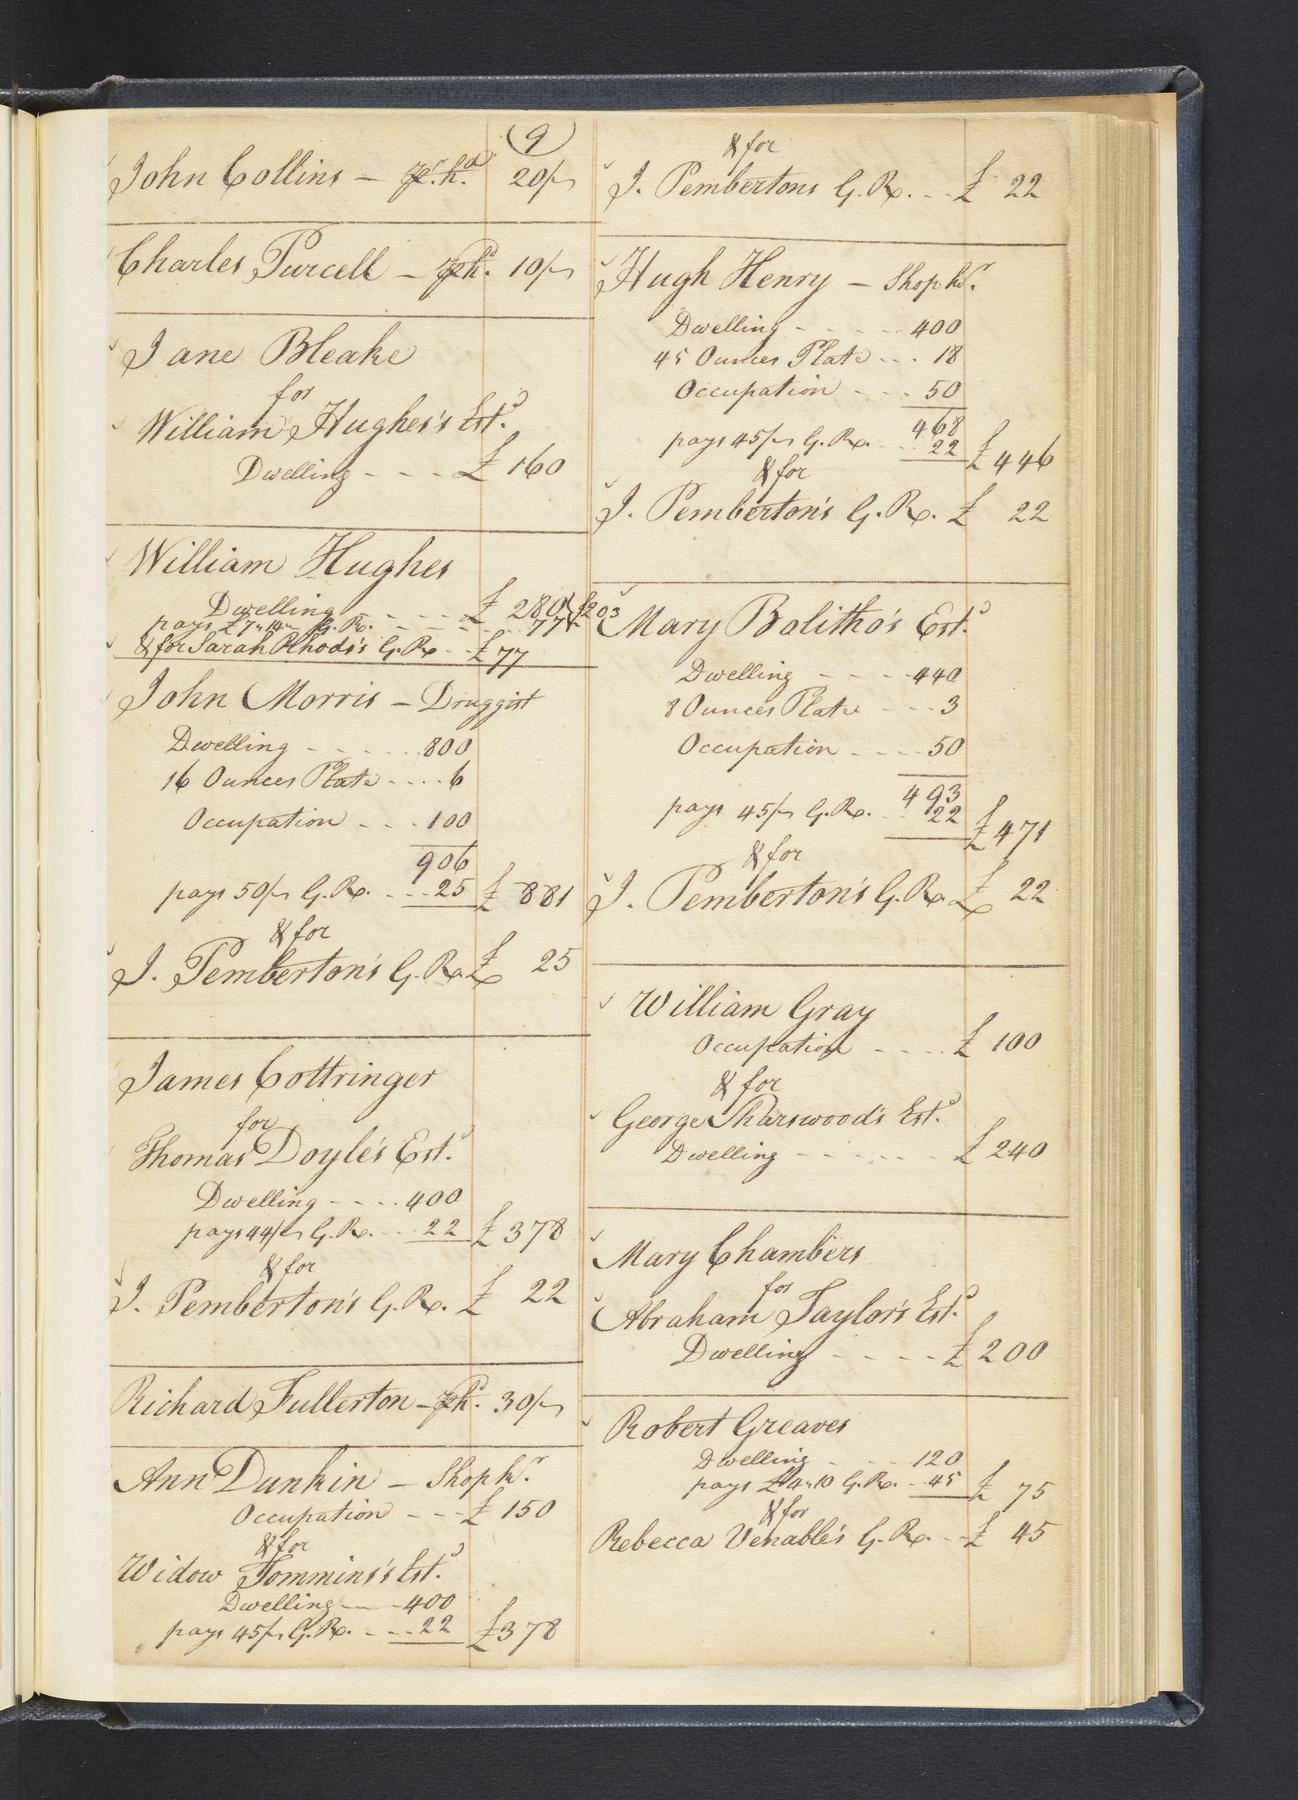 9
John Collins — pr. hd. 20/
Charles Purcell — ph. 10/
Jane Bleake
for
William Hughes's Estd.
Dwelling - - - £ 160
William Hughes
Dwelling - - - - £ 280 } £203
pays £7"14 G. R. - - - 77
& for Sarah Rhods's G. R. - - £ 77
John Morris — Druggist
Dwelling - - - - 800
16 Ounces Plate - - - 6
Occupation - - - 100
906
pays 50/ G. R. - - 25 £ 881
& for
J. Pemberton's G. R. £ 25
James Cottringer
for
Thomas Doyle's Estd.
Dwelling - - - 400
pays 44/ G. R. - - 22 £ 378
& for
J. Pemberton's G. R. £ 22
Richard Fullerton — ph. 30/
Ann Dunkin — Shop kr.
Occupation - - - £ 150
& for
Widow Tommins's Estd.
Dwelling - - 400
pays 45/ G. R. - - - 22 £ 378
& for
J. Pembertons G. R. - - £ 22
Hugh Henry — Shop kr.
Dwelling - - - - 400
45 Ounces Plate - - - 18
Occupation - - - 50
468
pays 45/ G. R. - - 22 £ 446
& for
J. Pemberton's G. R. £ 22
Mary Bolitho's Estd.
Dwelling - - - - 440
8 Ounces Plate - - - 3
Occupation - - - - 50
493
pays 45/ G. R. - - 22 £ 471
& for
J. Pemberton's G. R. £ 22
William Gray
Occupation - - - - £ 100
& for
George Sharswood's Estd.
Dwelling - - - - - - £ 240
Mary Chambers
for
Abraham Taylor's Estd.
Dwelling - - - - £ 200
Robert Greaves
Dwelling - - - 120
pays £4"10 G. R. - 45 £ 75
& for
Rebecca Venable's G. R. - - £ 45